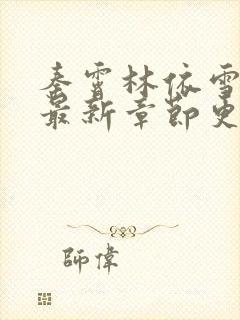 秦霄林依雪
最新章節更
師偉